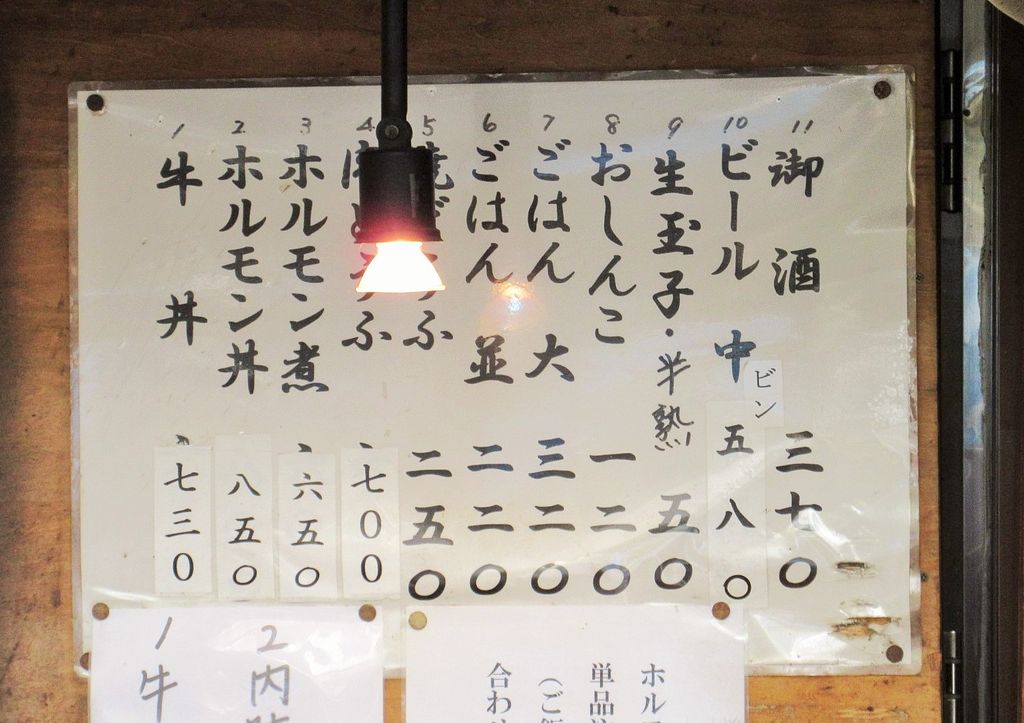 11 御酒 三七〇
10 ビール 中 ビン 五八〇
9 生玉子・半熟 五〇
8 おしんこ 一二〇
7 ごはん 大 三二〇
6 ごはん 並 二二〇
5 焼どうふ 二五〇
4 肉どうふ 七〇〇
3 ホルモン煮 六五〇
2 ホルモン丼 八五〇
1 牛丼 七三〇
1 牛
2 内
ホル
単品
(ご飯
合わ